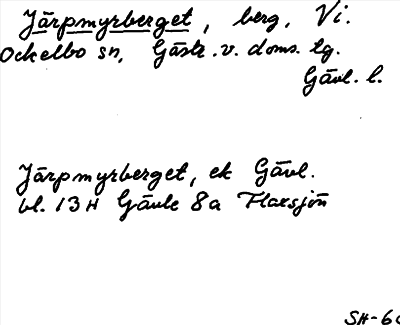 Järpmyrberget, berg, Vi.
Ockelbo sn, Gästr. v. doms. tg.
Gävl. l.
Järpmyrberget, ek Gävl.
bl. 13 H Gävle 8a Flaxsjön
SH-60